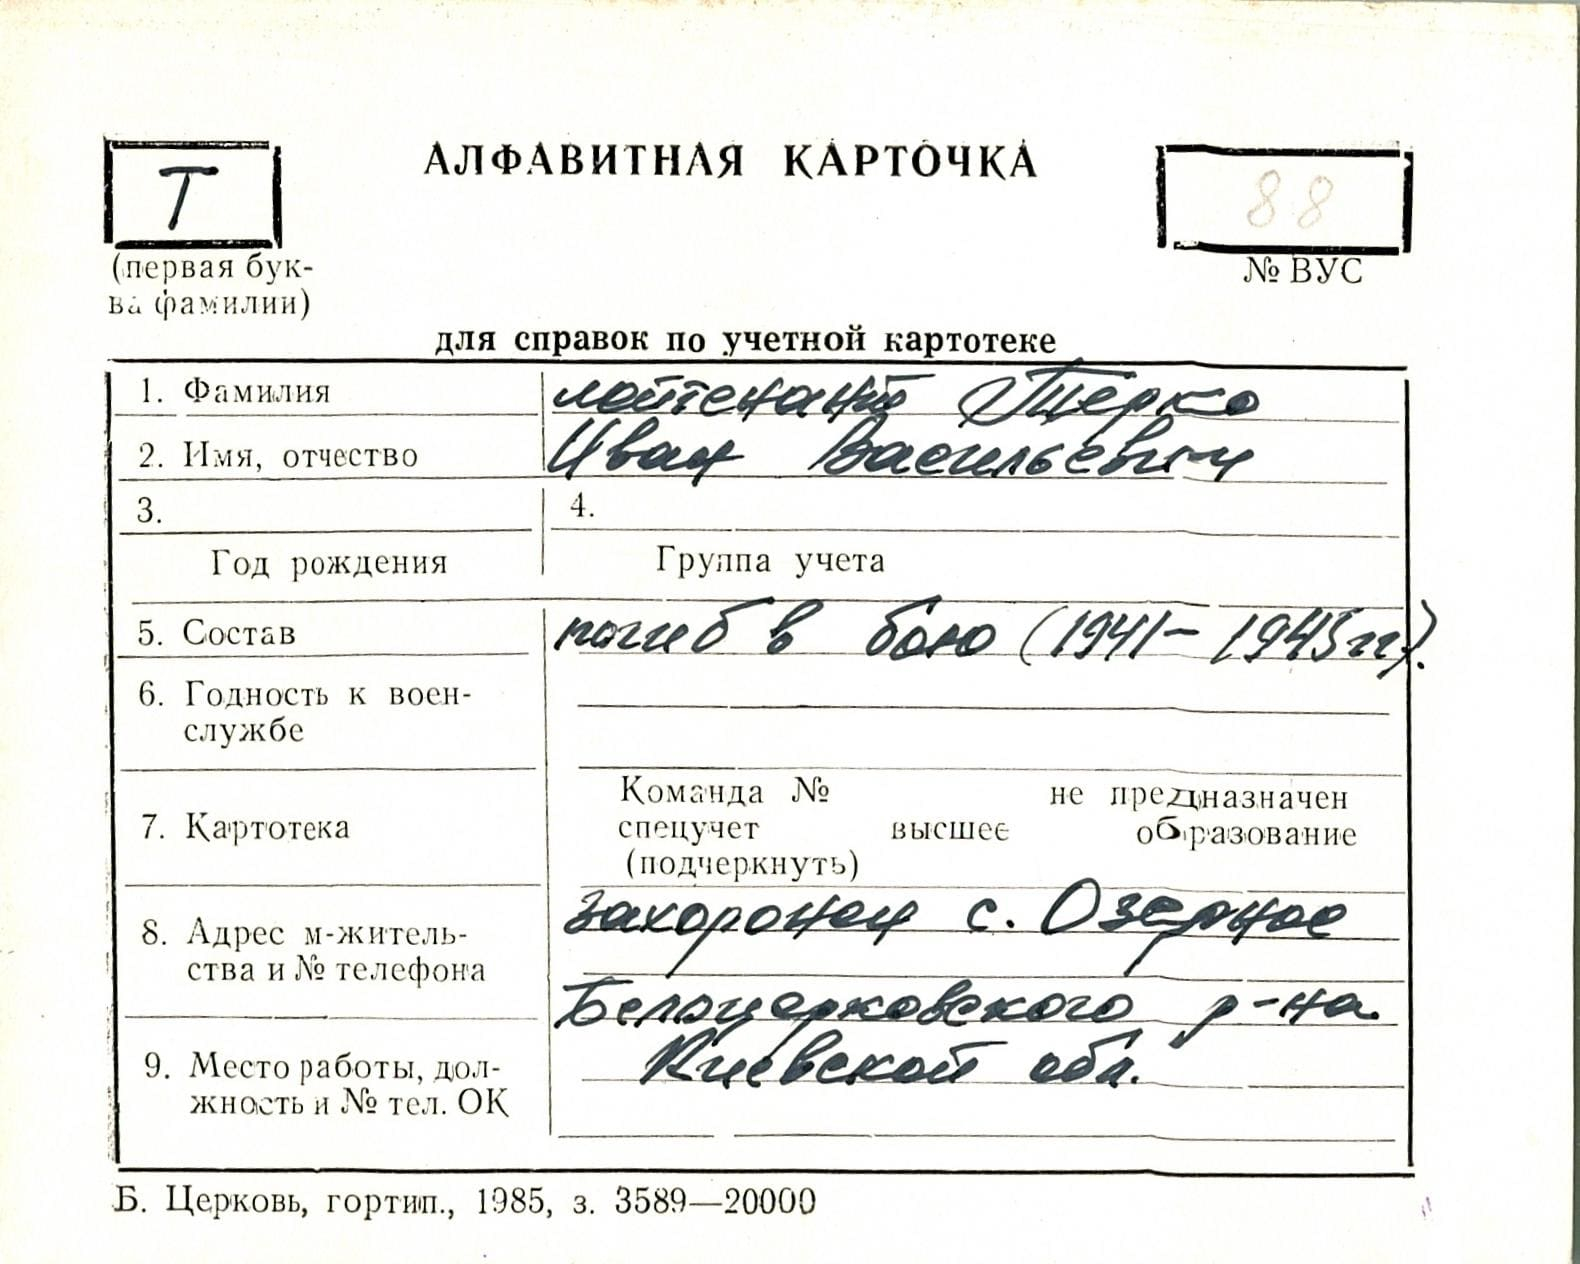 Т
АЛФАВИТНАЯ КАРТОЧКА
88
(первая бук-
ва фамилии)
№ ВУС
для справок по учетной картотеке
1. Фамилия лейтенант Терко
2. Имя, отчество Иван Васильевич
3. 4.
Год рождения Группа учета
5. Состав погиб в бою (1941-1945гг).
6. Годность к воен-
службе
Команда № не предназначен
7. Картотека спецучет высшее образование
(подчеркнуть)
захоронен с. Озерное
8. Адрес м-житель-
ства и № телефона
Белоцерковского р-на
Киевской обл.
9. Место работы, дол-
жность и № тел. ОК
Б. Церковь, гортип., 1985, з. 3589—20000